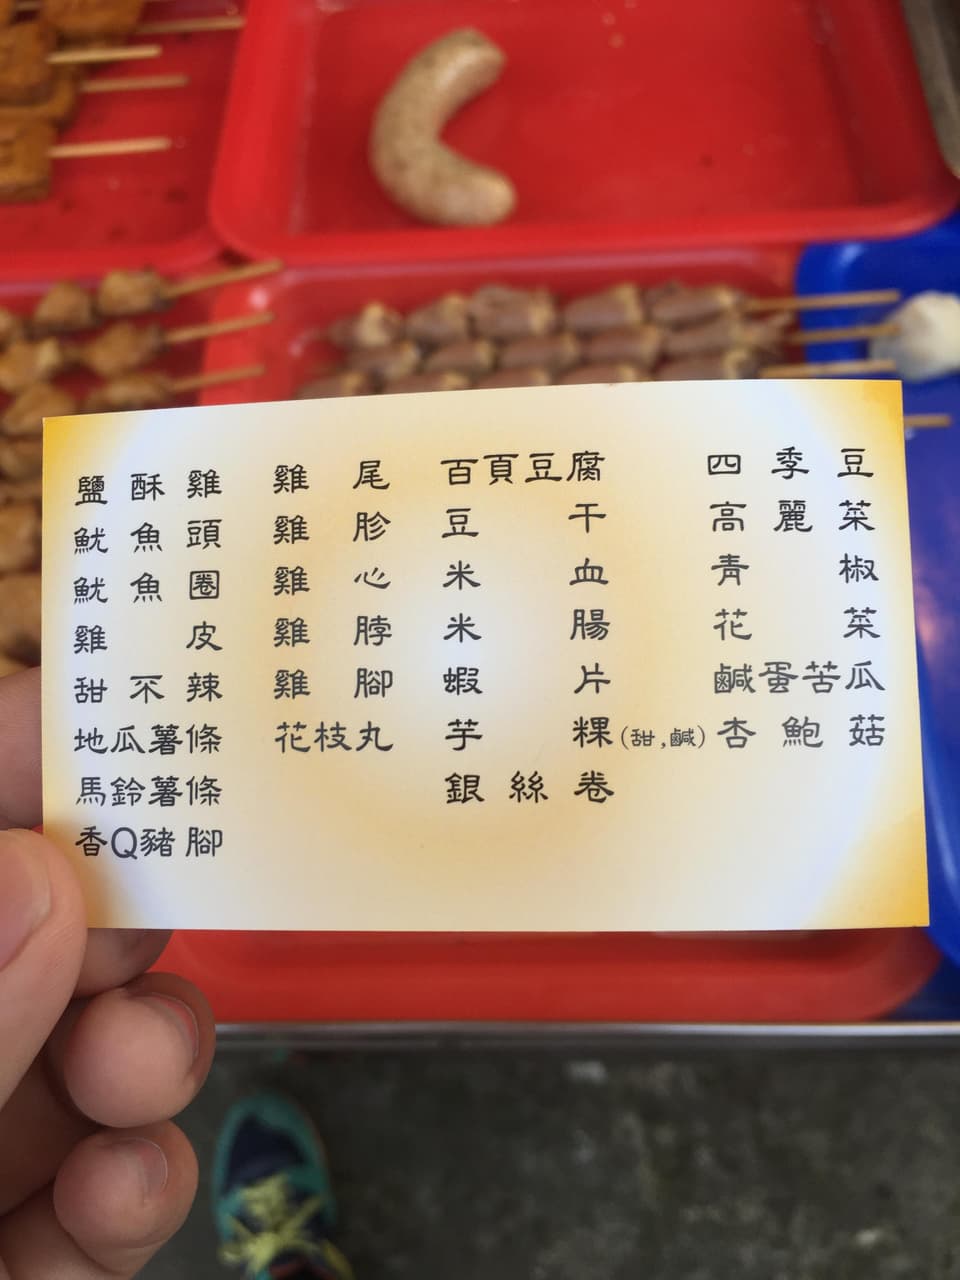 鹽酥雞
魷魚頭
魷魚圈
雞皮
甜不辣
地瓜薯條
馬鈴薯條
香Q豬腳
雞尾
雞胗
雞心
雞脖
雞腳
花枝丸
百頁豆腐
豆干
米血
米腸
蝦片
芋粿(甜,鹹)
銀絲卷
四季豆
高麗菜
青椒
花菜
鹹蛋苦瓜
杏鮑菇